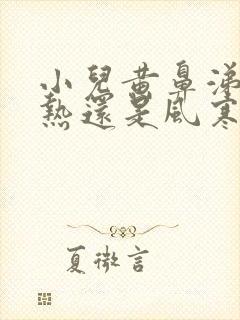 小兒黃鼻涕
熱還是風寒
夏微言